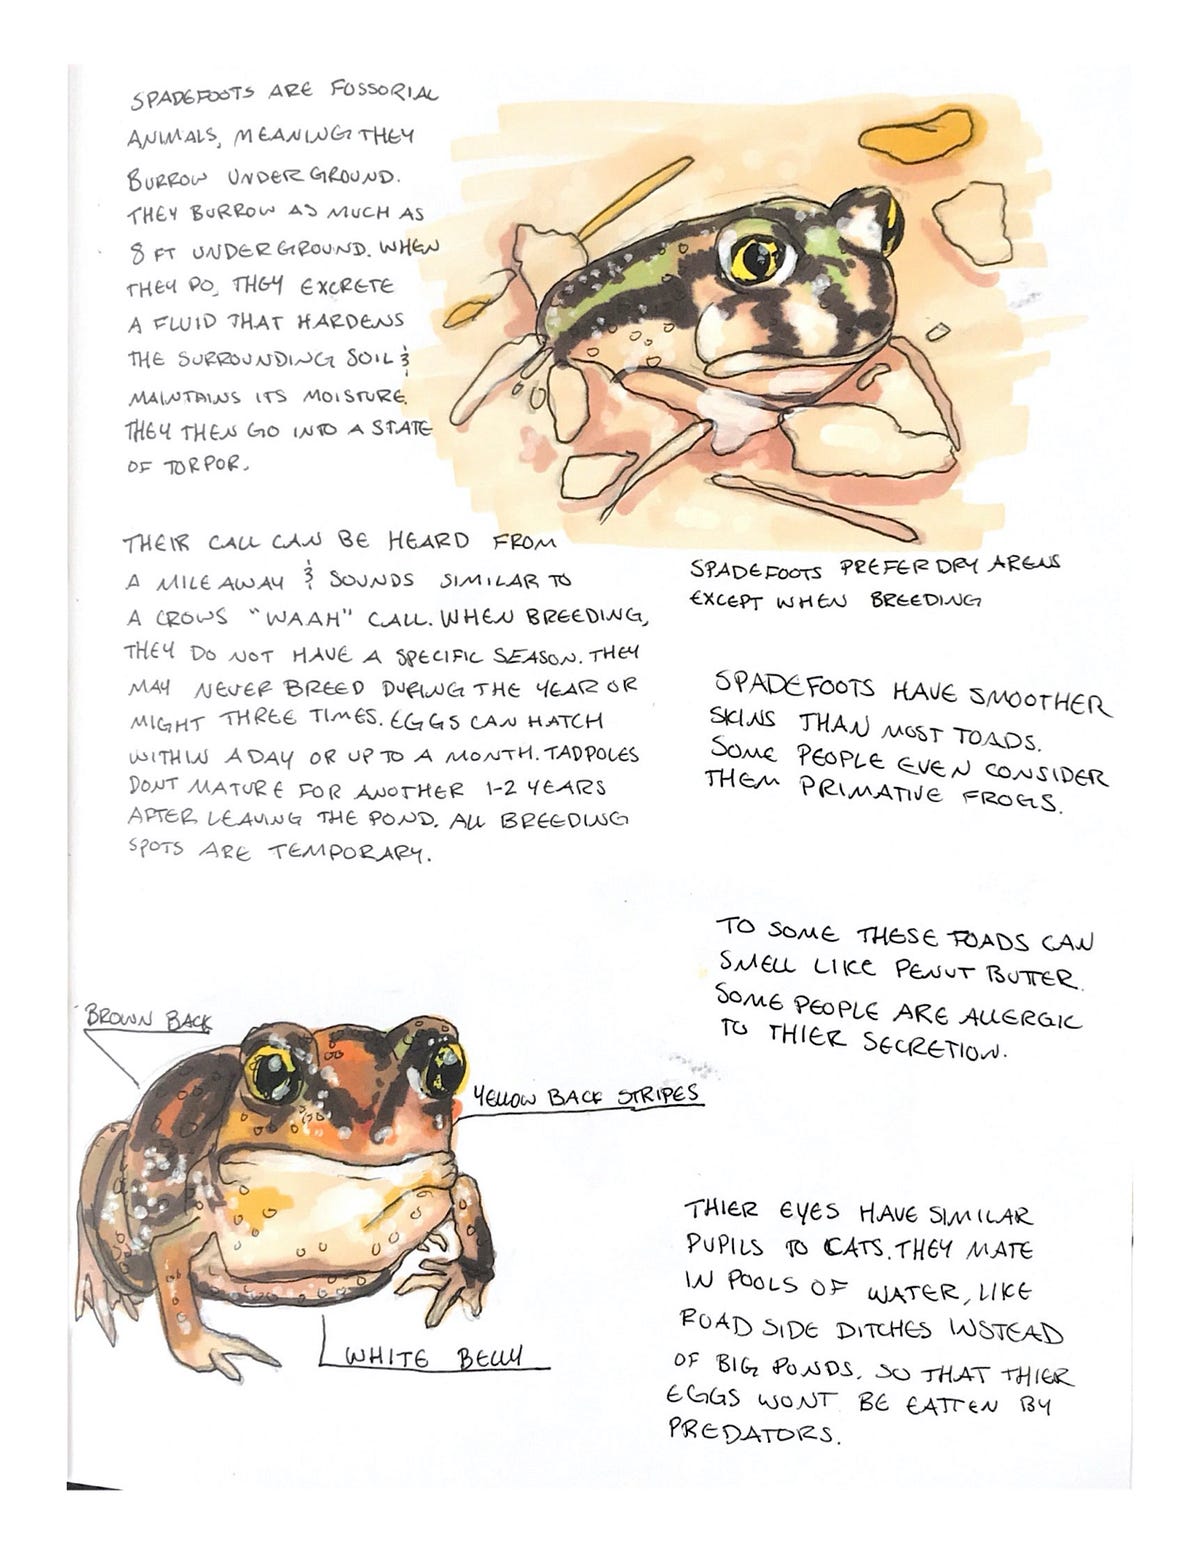 SPADEFOOTS ARE FOSSORIAL
ANIMALS, MEANING THEY
BURROW UNDERGROUND.
THEY BURROW AS MUCH AS
8 FT UNDERGROUND. WHEN
THEY DO, THEY EXCRETE
A FLUID THAT HARDENS
THE SURROUNDING SOIL &
MAINTAINS ITS MOISTURE.
THEY THEN GO INTO A STATE
OF TORPOR.
THEIR CALL CAN BE HEARD FROM
A MILE AWAY & SOUNDS SIMILAR TO
A CROWS "WAAH" CALL. WHEN BREEDING,
THEY DO NOT HAVE A SPECIFIC SEASON. THEY
MAY NEVER BREED DURING THE YEAR OR
MIGHT THREE TIMES. EGGS CAN HATCH
WITHIN A DAY OR UP TO A MONTH. TADPOLES
DONT MATURE FOR ANOTHER 1-2 YEARS
AFTER LEAVING THE POND. ALL BREEDING
SPOTS ARE TEMPORARY.
SPADEFOOTS PREFER DRY AREAS
EXCEPT WHEN BREEDING
SPADEFOOTS HAVE SMOOTHER
SKINS THAN MOST TOADS.
SOME PEOPLE EVEN CONSIDER
THEM PRIMATIVE FROGS.
TO SOME THESE TOADS CAN
SMELL LIKE PENUT BUTTER.
SOME PEOPLE ARE ALLERGIC
TO THIER SECRETION.
BROWN BACK
YELLOW BACK STRIPES
WHITE BELLY
THIER EYES HAVE SIMILAR
PUPILS TO CATS. THEY MATE
IN POOLS OF WATER, LIKE
ROAD SIDE DITCHES INSTEAD
OF BIG PONDS. SO THAT THIER
EGGS WONT BE EATTEN BY
PREDATORS.